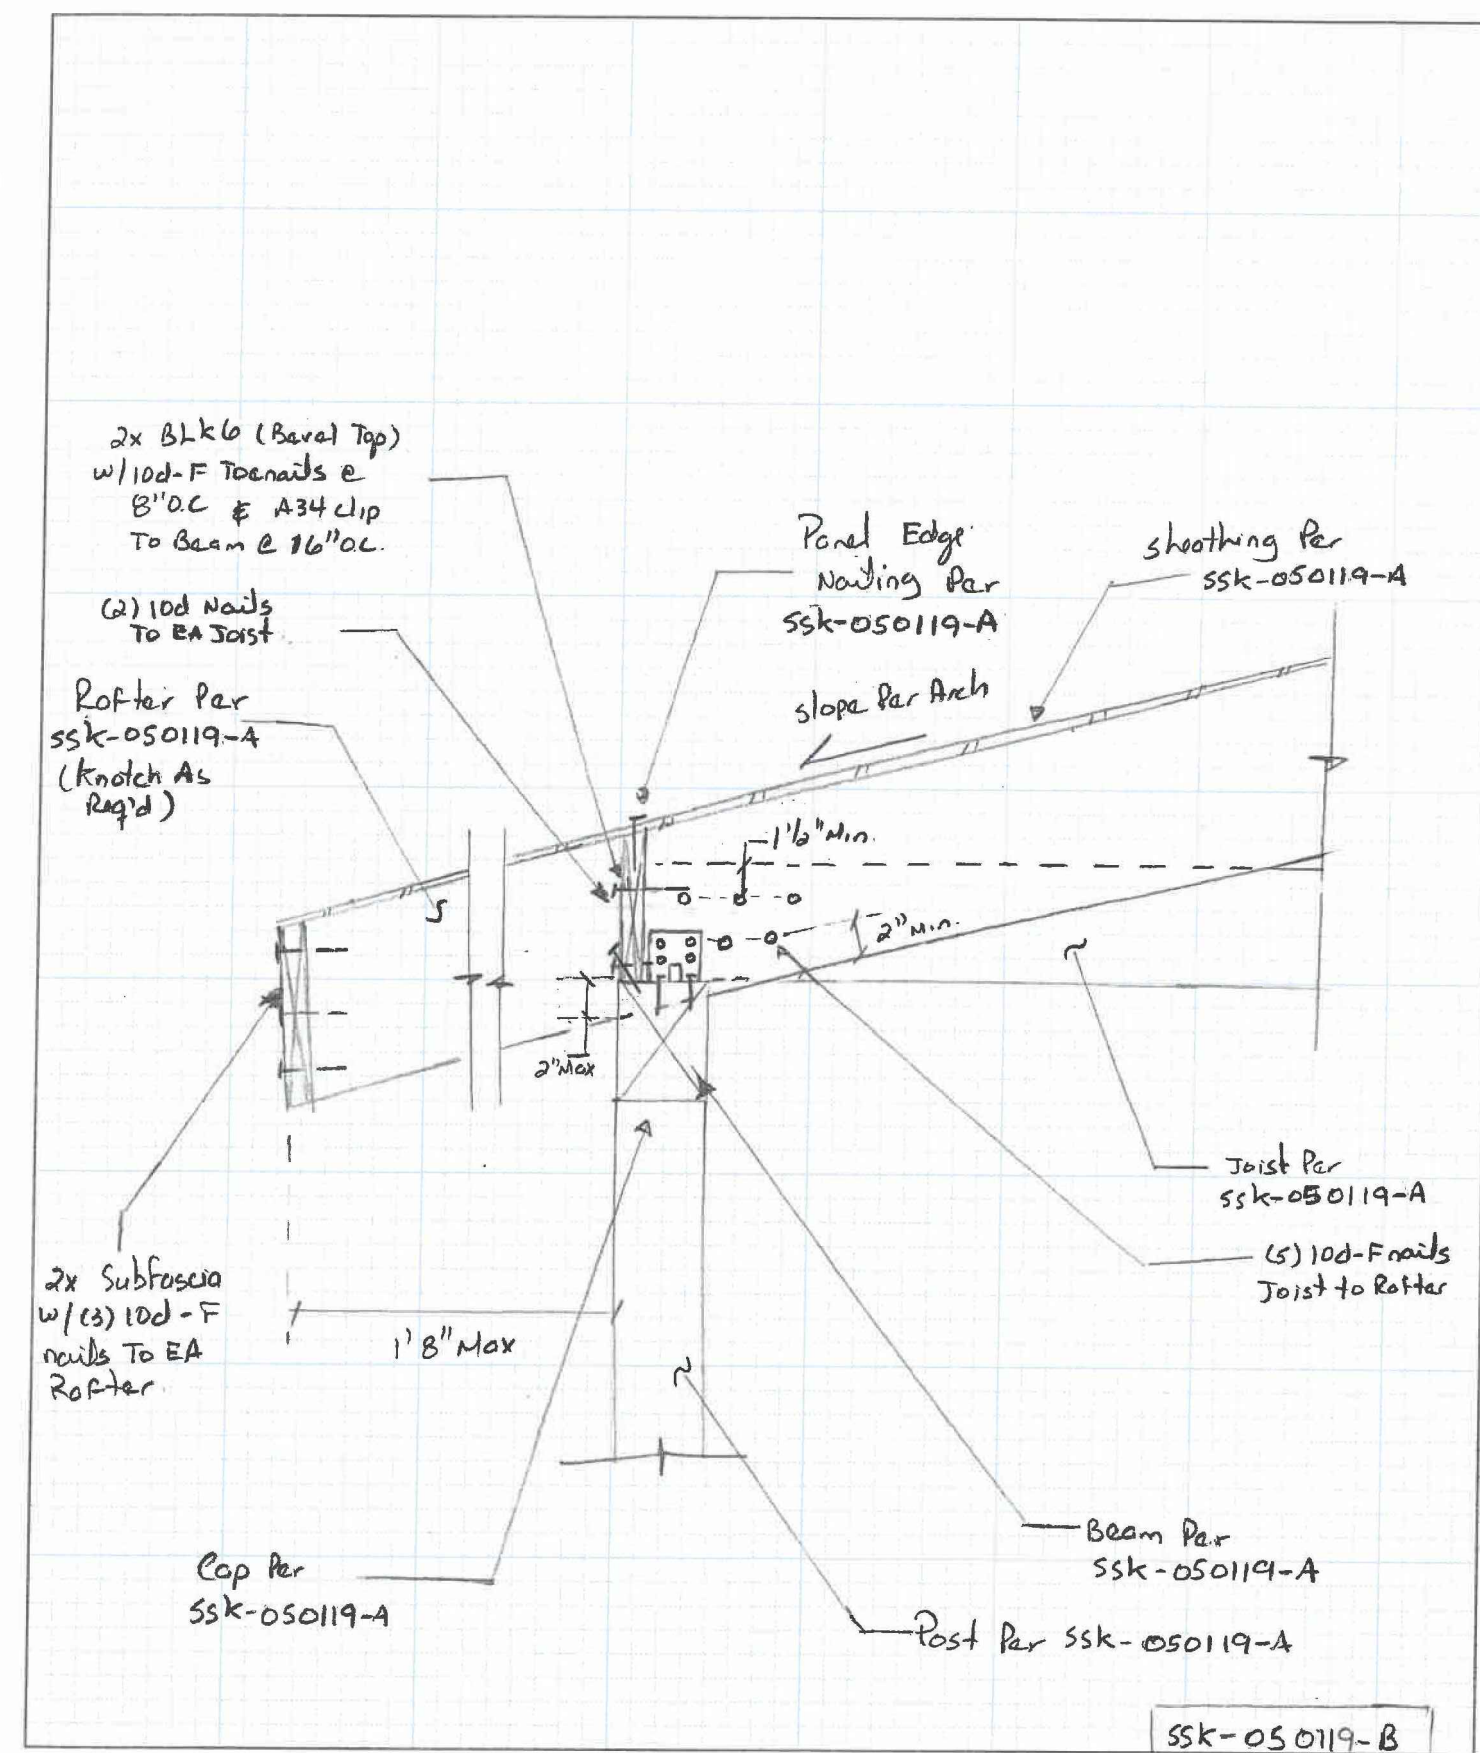 2x BLKG (Bevel Top)
w/10d-F Toenails @
8" O.C & A34 clip
To Beam @ 16" O.C.
(2) 10d Nails
To EA Joist
Rafter Per
SSK-050119-A
(Knotch As
Req'd)
Panel Edge
Nailing Per
SSK-050119-A
sheathing Per
SSK-050119-A
slope Per Arch
1 1/2" Min.
2" Min.
2" Max
Joist Per
SSK-050119-A
(5) 10d-F nails
Joist to Rafter
2x Subfascia
w/(3) 10d-F
nails To EA
Rafter
1' 8" Max
Cap Per
SSK-050119-A
Beam Per
SSK-050119-A
Post Per SSK-050119-A
SSK-050119-B